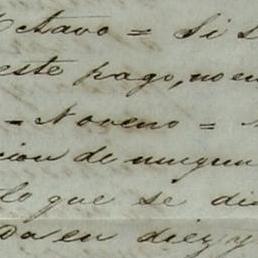 Octavo = Si s
este pago, no en
- Noveno =
cion de ningun
lo que se di
da en diez y